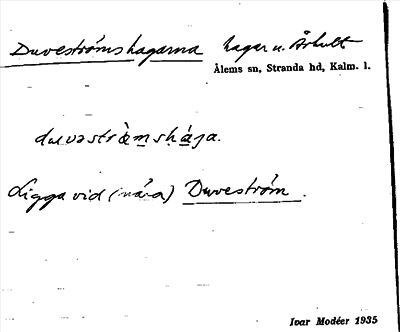 Duveströmshagarna hagar u. Århult
Ålems sn, Stranda hd, Kalm. l.
duvəstrə̀mshá̤ɡa.
Ligga vid (nära) Duveström.
Ivar Modéer 1935